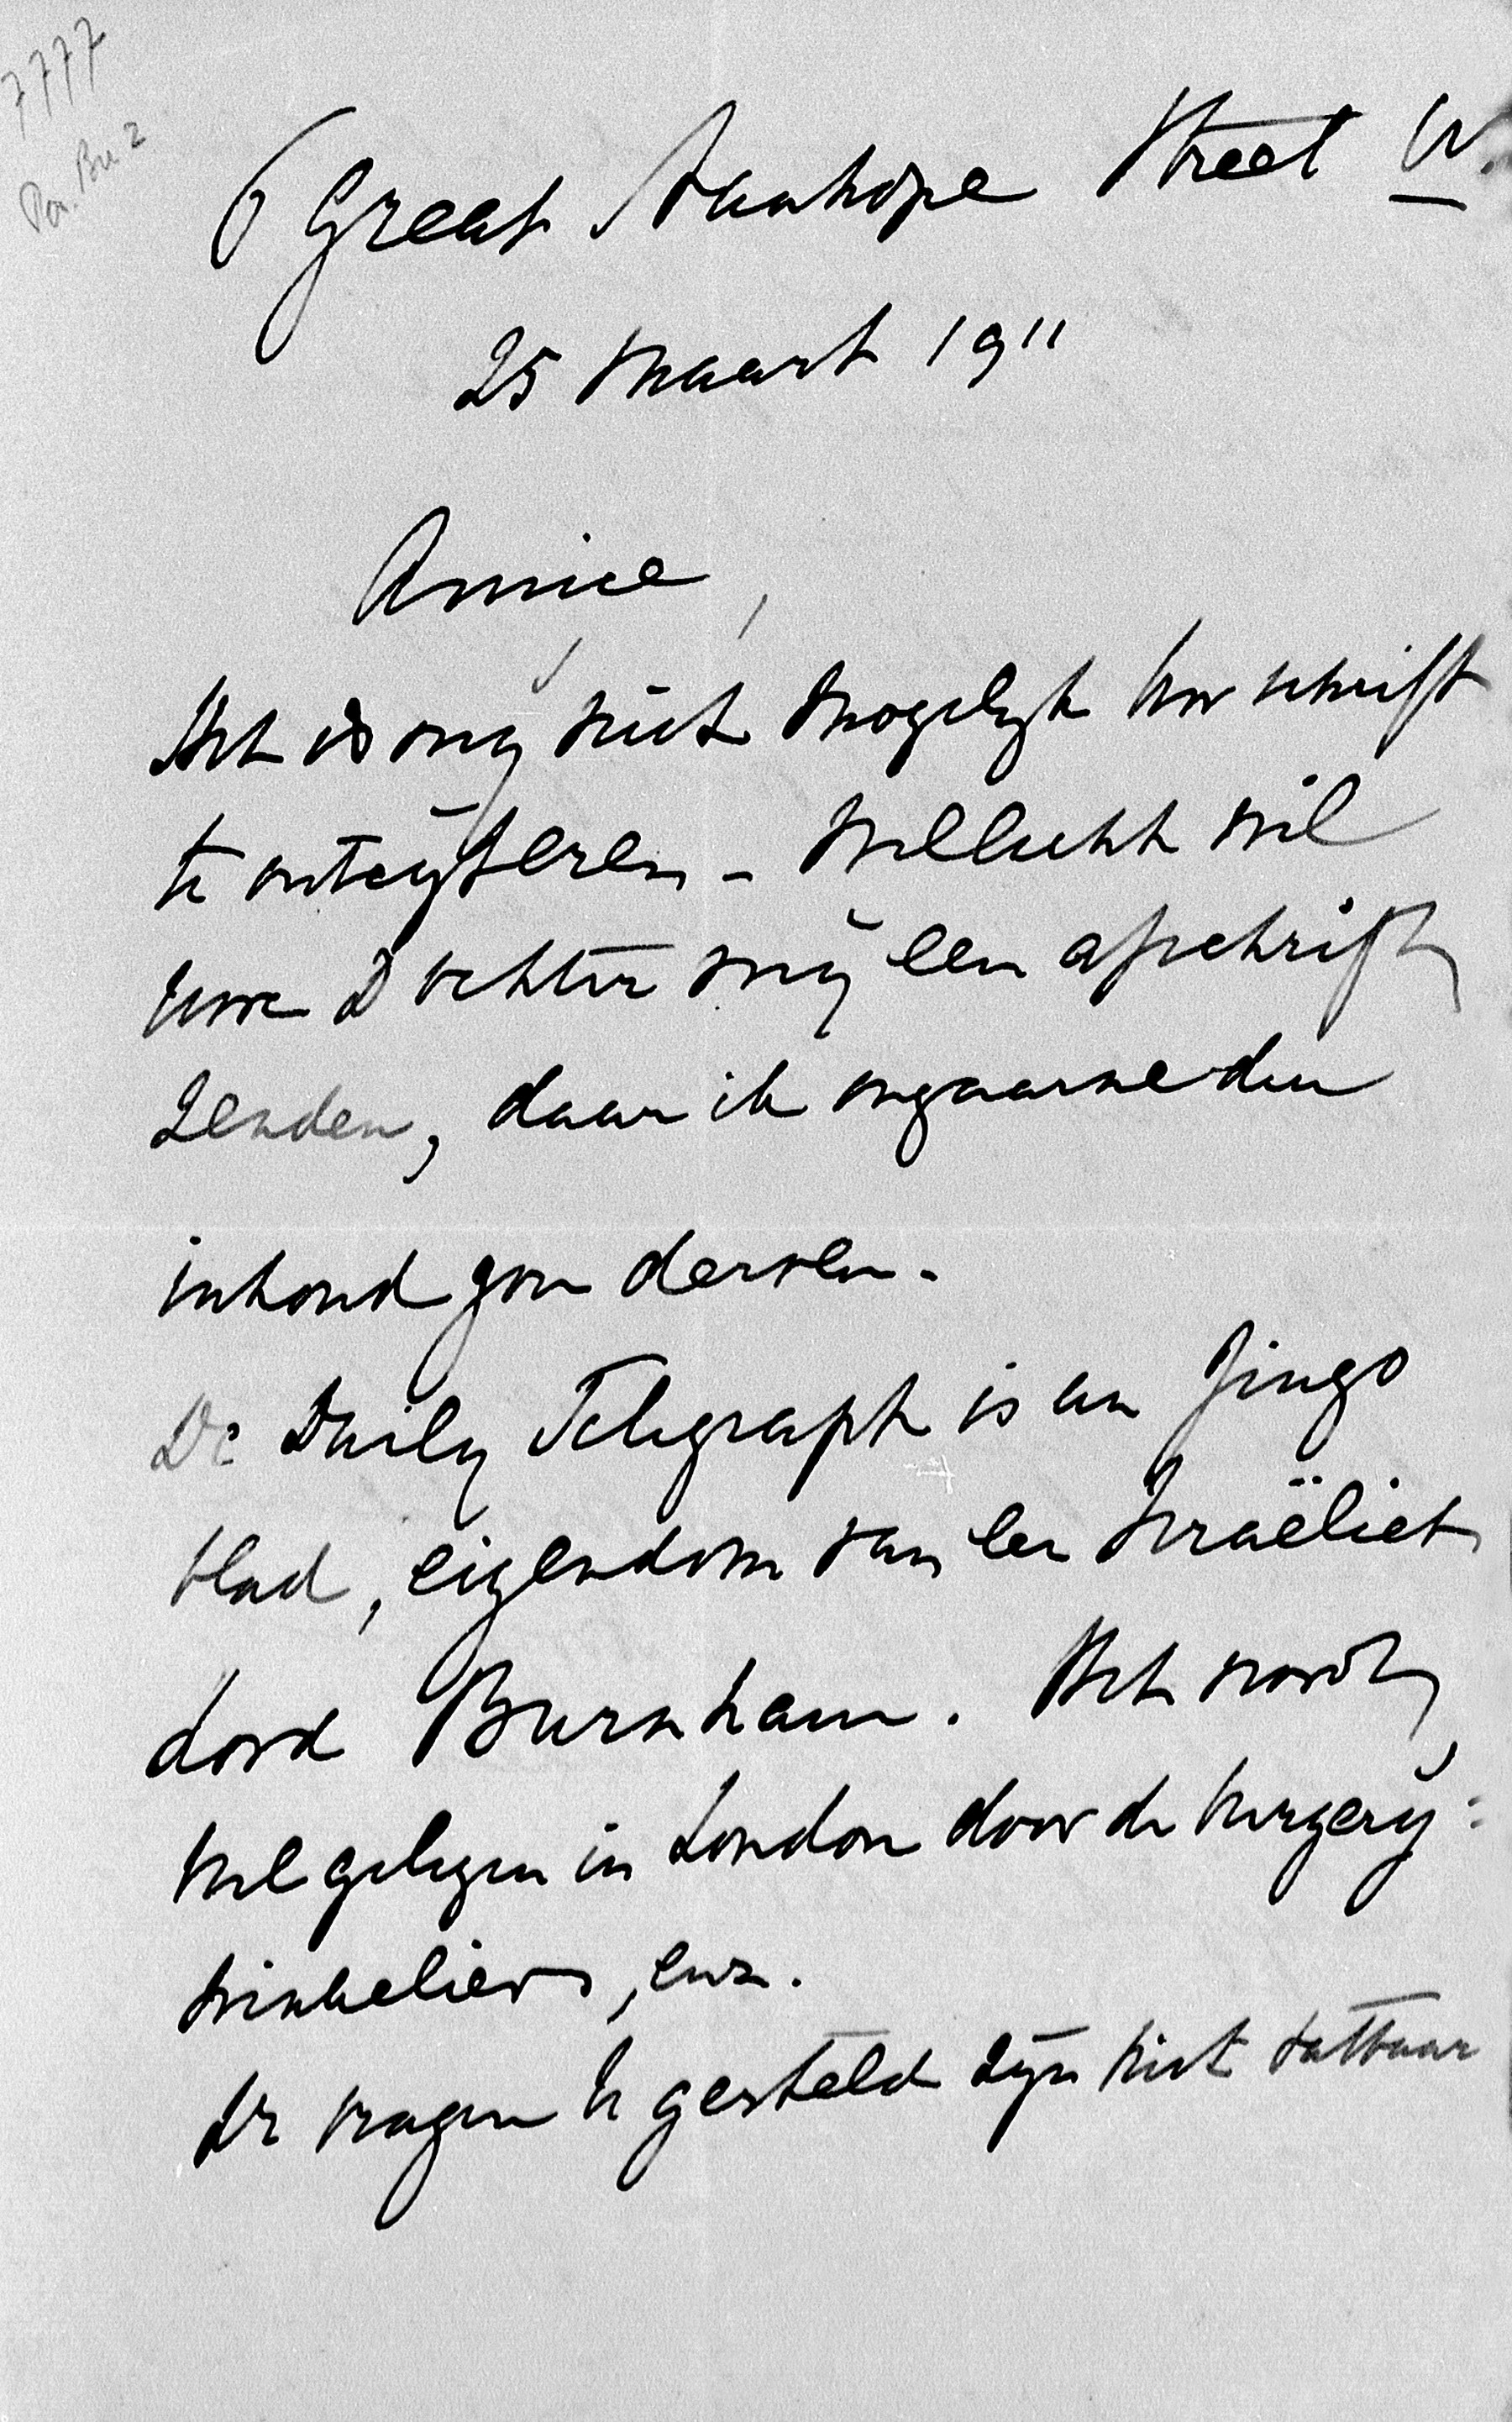 7777
6 Great Stanhope Street W.
25 Maart 1911
Amice,
Het is mij niet mogelijk Uw schrift
te ontcijferen - Wellicht wil
Uwe Dochter mij een afschrift
zenden, daar ik ongaarne den
inhoud zou derven.
De Daily Telegraph is een Jingo
blad, eigendom van een Israëliet
Lord Burnham. Het wordt
veel gelezen in London door de burgerij:
winkeliers, enz.
De vragen U gesteld zijn niet vatbaar